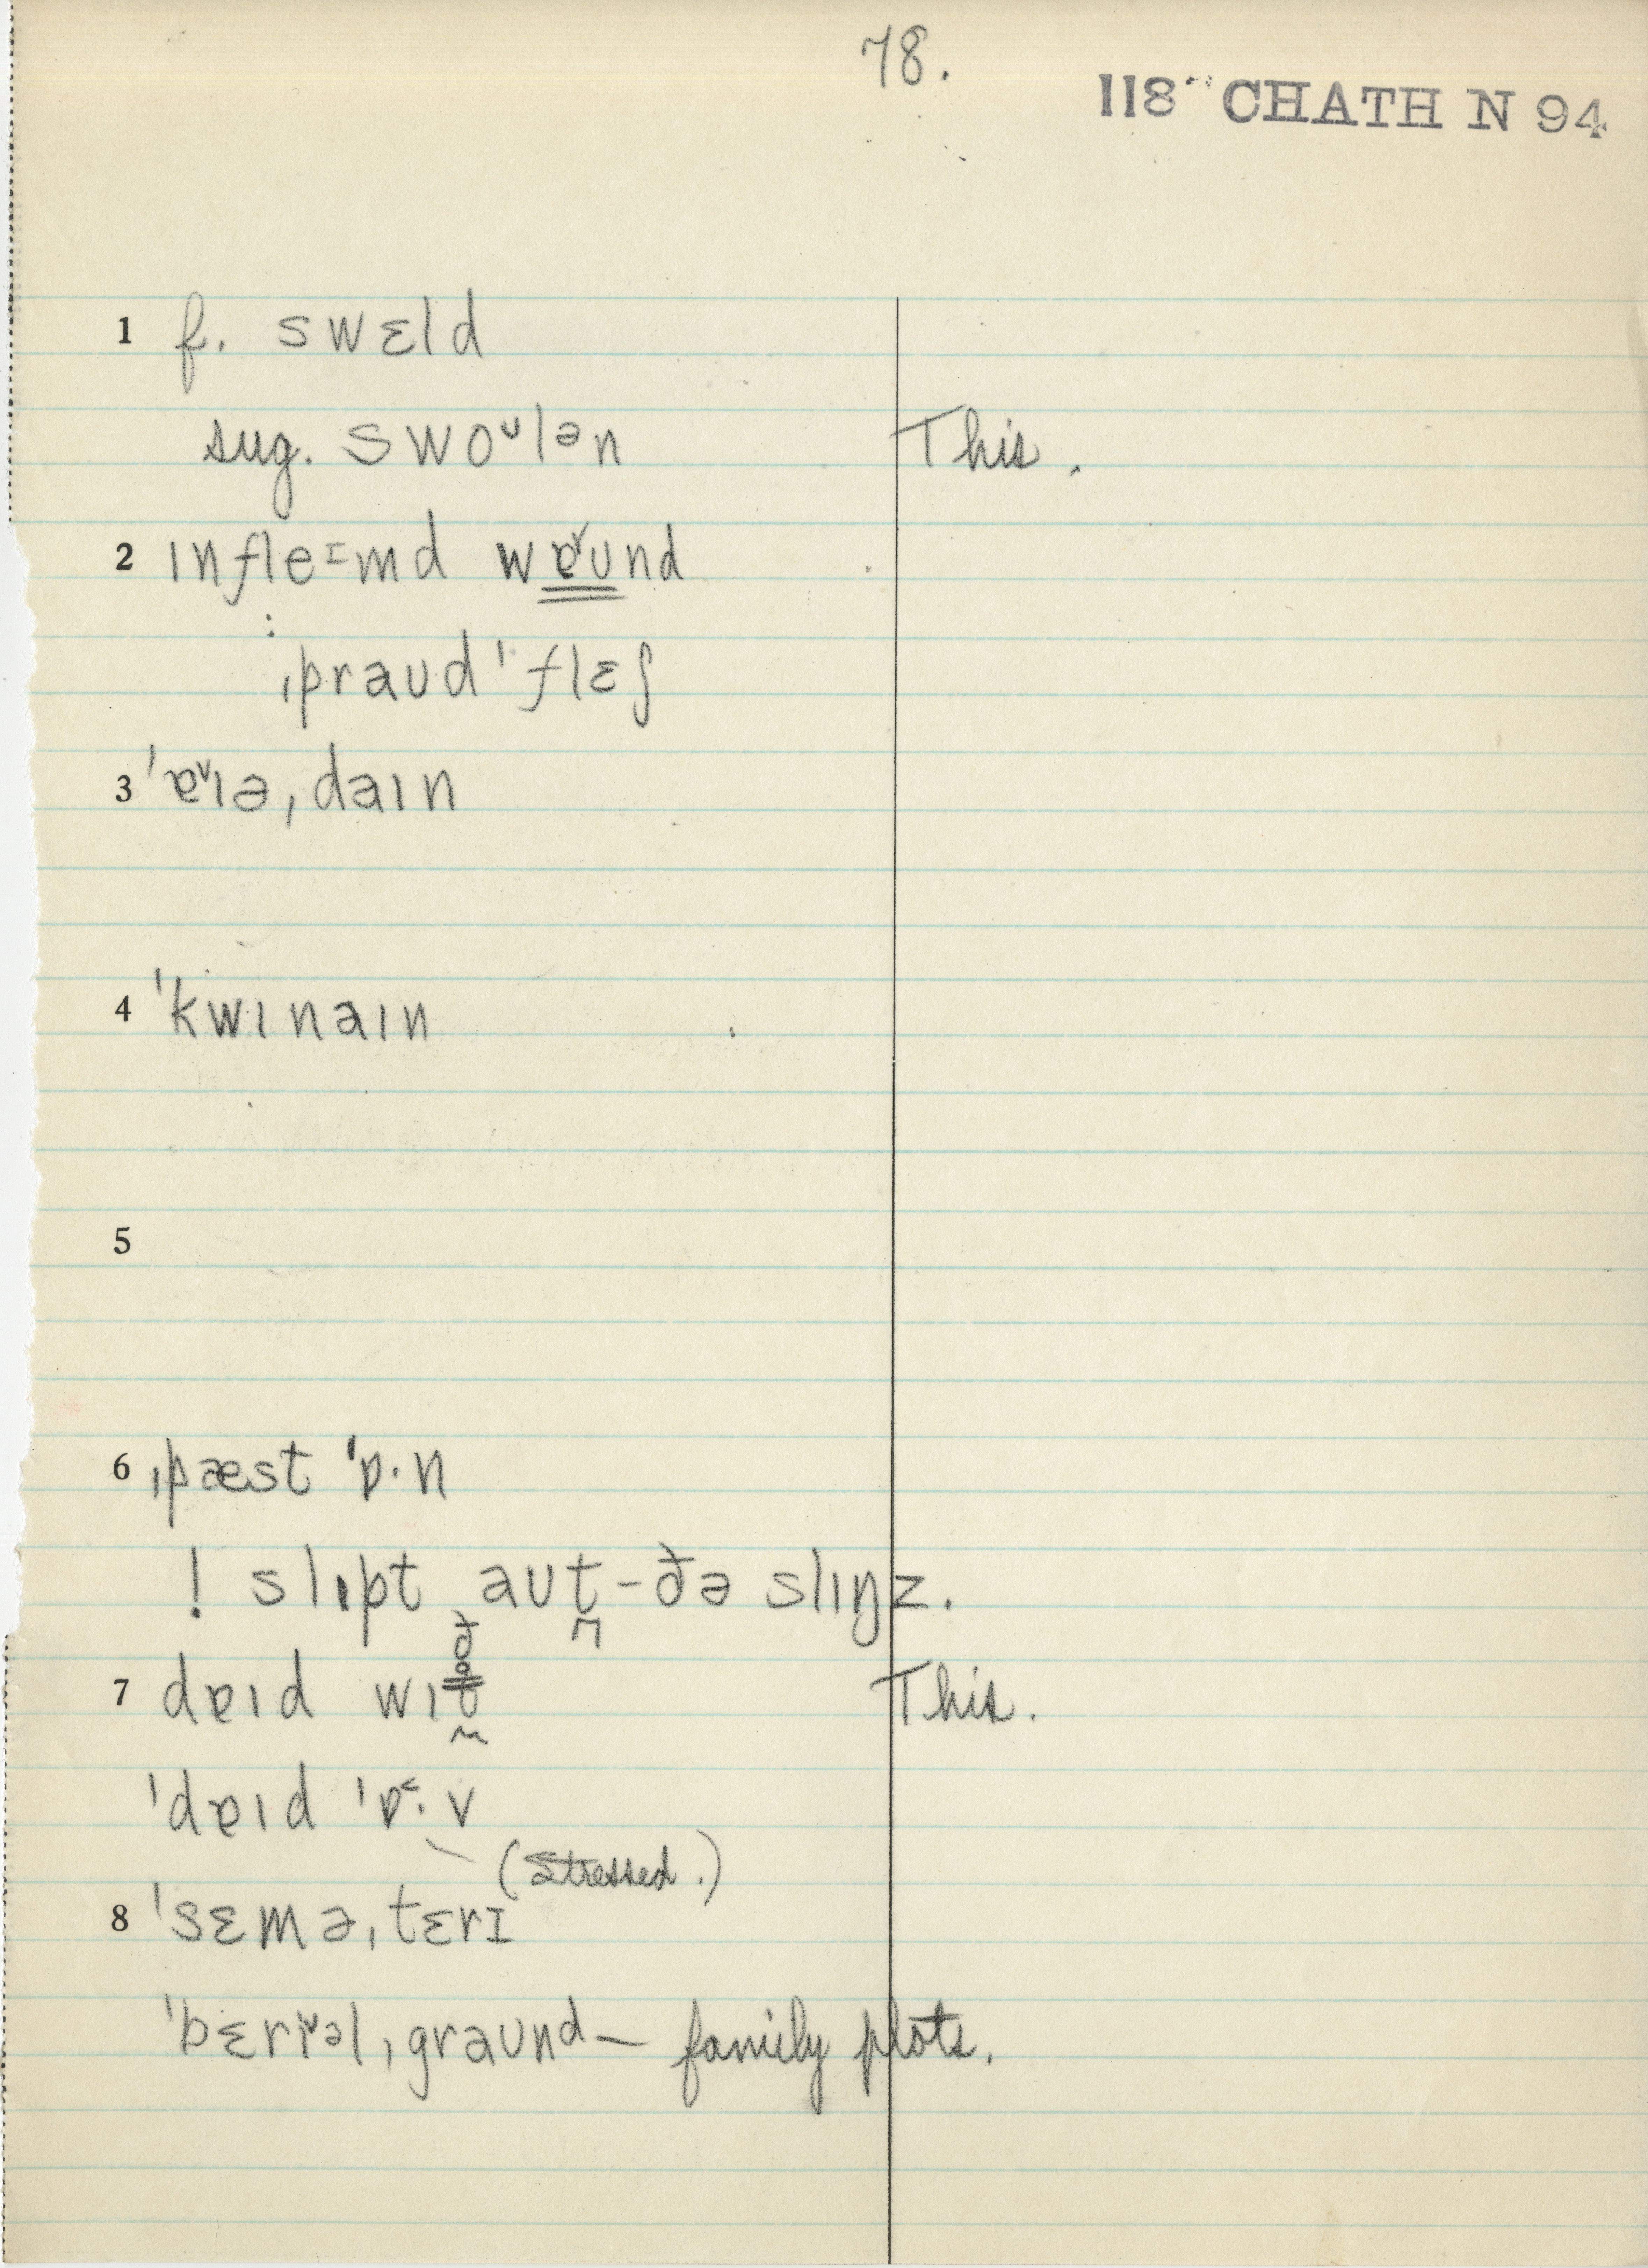 78.
118 CHATH N 94
1 f. swɛld
sug. swoᶷlᵊn This.
2 ɪnfleɪmd wɐ˅ʊnd
: ˌpraʊd ˈflɛʃ
3 ˈɐ˅ɪəˌdaɪn
4 ˈkwɪnaɪn
5
6 ˌpæst ˈɒ·n
! slɪpt aʊt̪-ðə slɪŋz.
7 dɐɪd wɪt̬ ð This.
ˈdɐɪd ˈɒ˂·v
(Stressed.)
8 ˈsɛməˌtɛrɪ
ˈbɛrɪ˅əlˌgraʊnd — family plots.